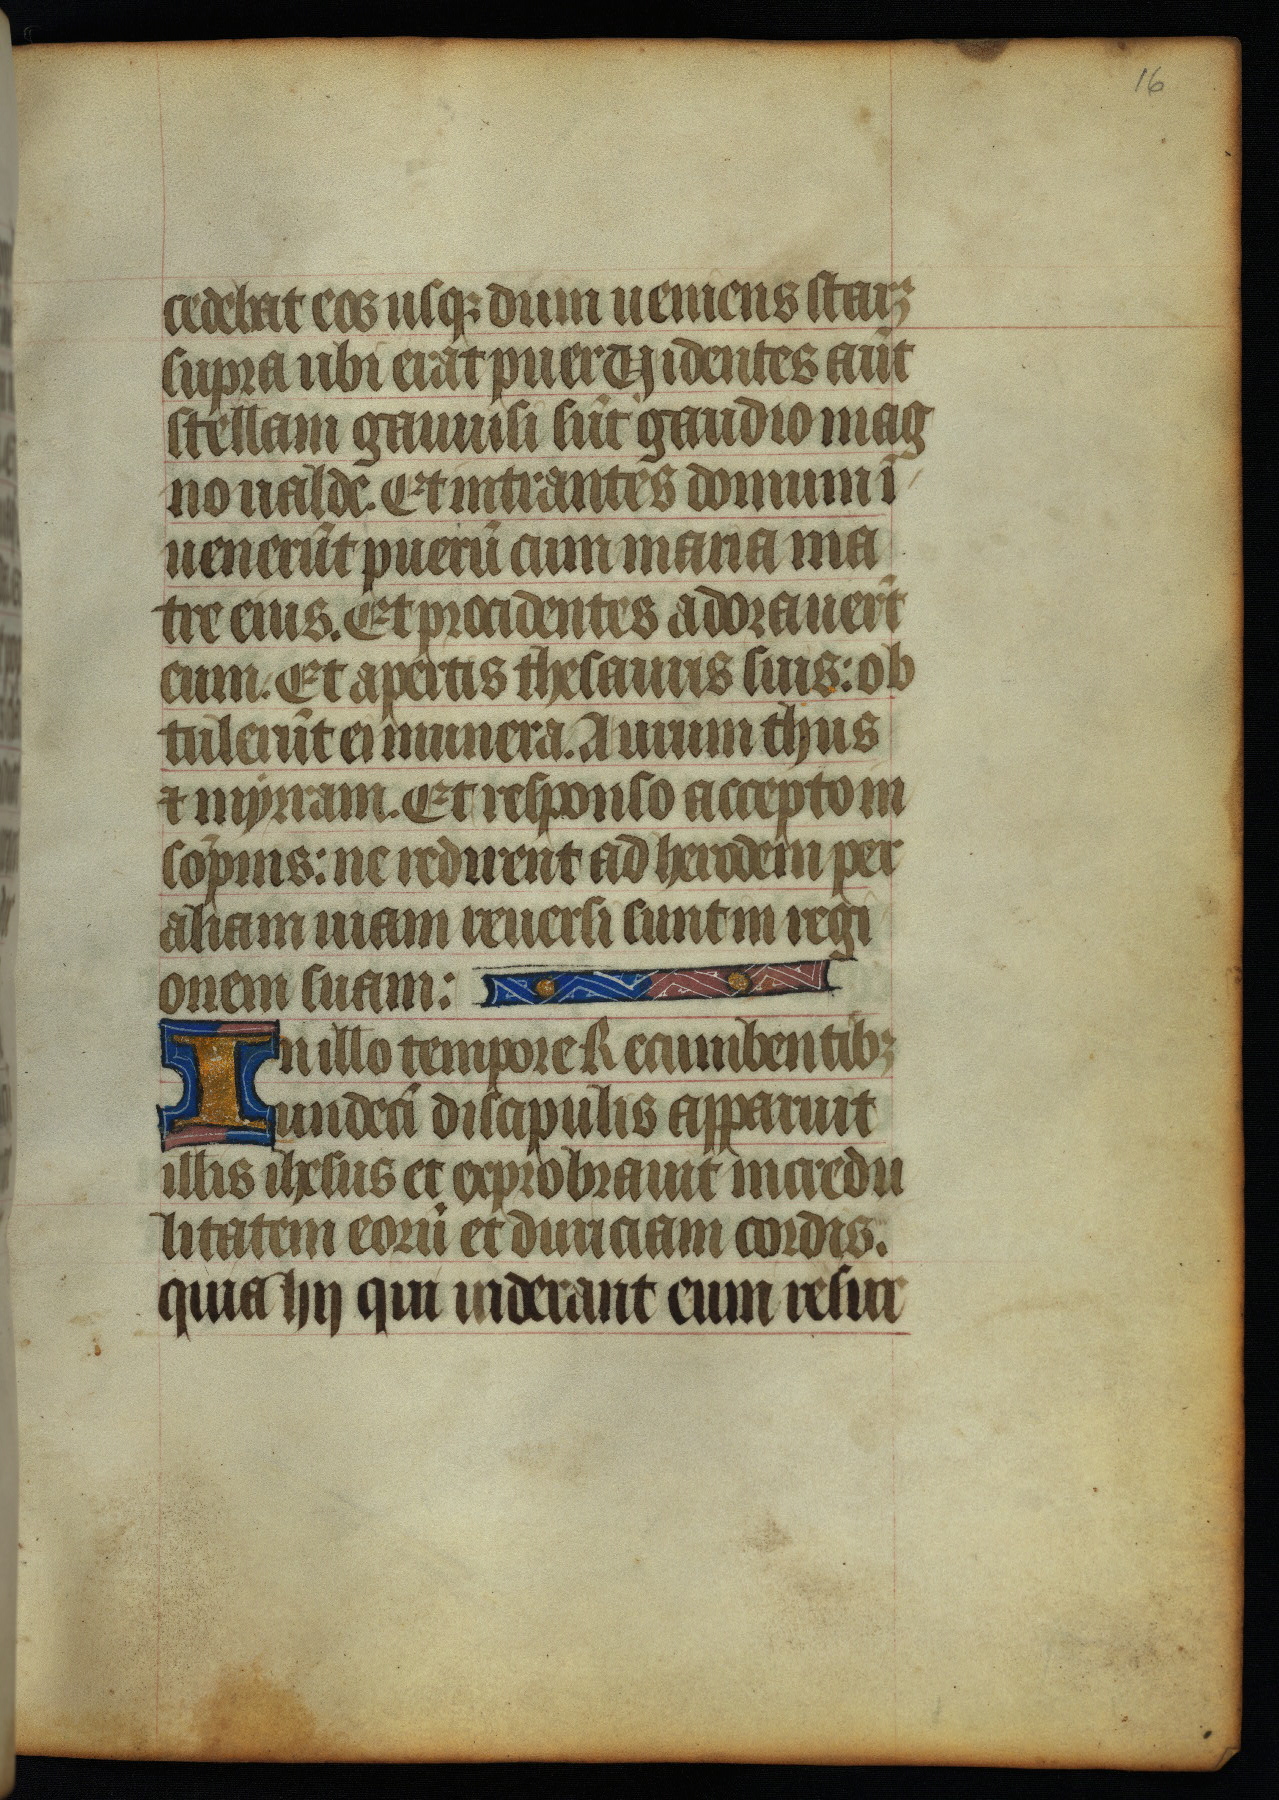 16
cedebat eos usqꝫ dum ueniens starꝫ
supra ubi erat puer Uidentes aūt
stellam gauuisi sūt gaudio mag
no ualde. Et intrantes domum ī
uenerūt puerū cum maria ma
tre eius. Et procidentes adorauerūt
eum. Et apertis thesauris suis: ob
tulerūt ei munera. Aurum thus
⁊ myrram. Et responso accepto in
sōpnis: ne redirent ad herodem per
aliam uiam reuersi sunt in regi
onem suam:
In illo tempore Recumbentibꝫ
undecī discipulis apparuit
illis ihesus et exprobrauit incredu
litatem eorū et duriciam cordis.
quia hij qui uiderant eum resur